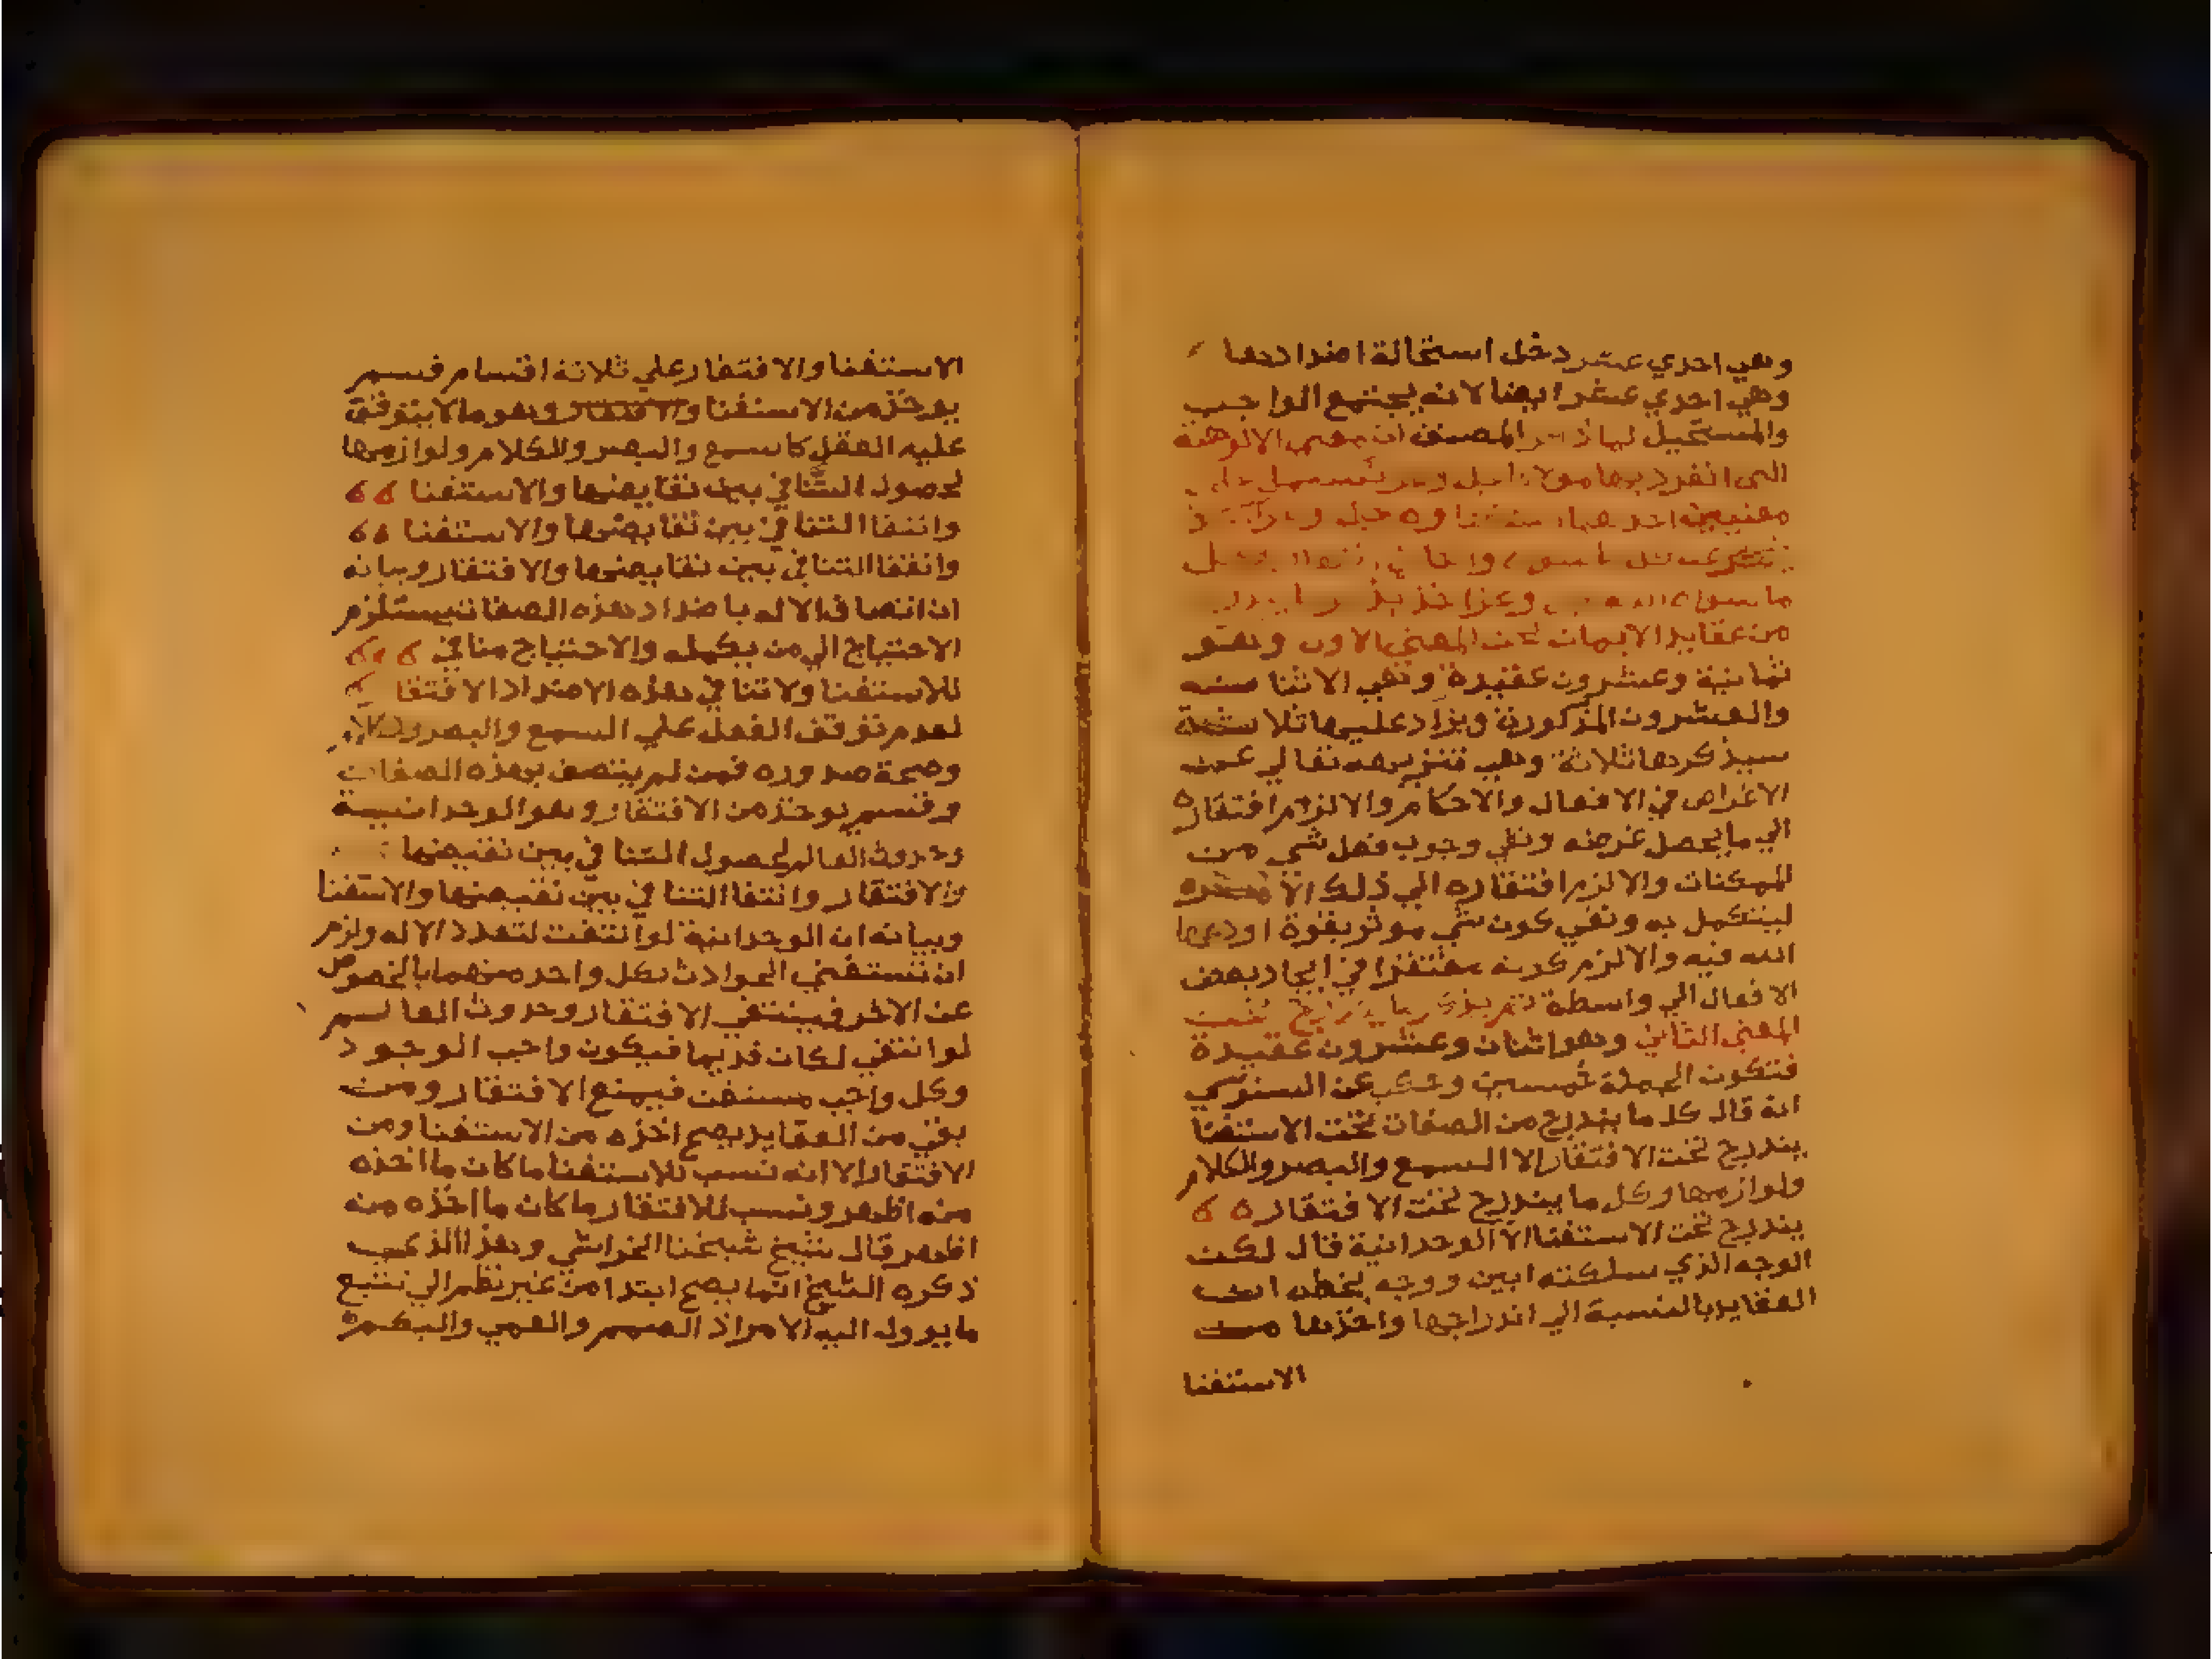 وهي احدي عشر دخل استحالة اضدادها
وهي احدي عشر ايضا لانه يجتمع الواجب
والمستحيل لما ذكر المصنف ان معنى الالوهية
التى انفرد بها مولانا جل وعز
معنيين احدهما استغناوه جل و
ما سواه وعز اخذ يذكر ما يندرج
من عقايد الايمان تحت المعني الاول وهو
ثمانية وعشرون عقيدة وهي الاثنا
والعشرون المذكورة ويزاد عليها ثلاثة
سيذكرها ثلاثة وهي تنزيهه تعالي عن
الاغراض في الافعال والاحكام والا لزم افتقاره
الي ما يحصل غرضه ونفي وجوب فعل شي من
الممكنات والا لزم افتقاره الي ذلك الا
ليتكمل به ونفي كون شي موثر بقوة اودعها
الله فيه والا لزم كونه مفتقرا في ايجاد بعض
الافعال الي واسطة ثم يذكر ما يندرج تحت
المعني الثاني وهو اثنان وعشرون عقيدة
فتكون الجملة خمسين وحكي عن السنوسي
انه قال كل ما يندرج من الصفات تحت الاستغنا
يندرج تحت الافتقار الا السمع والبصر والكلام
ولوازمها وكل ما يندرج تحت الافتقار
يندرج تحت الاستغنا الا الوحدانية قال لكن
الوجه الذي سلكته ابين ووجه بخطه ان
العقايد بالنسبة الي اندراجها واخذها من
الاستغنا
الاستغنا والافتقار علي ثلاثة اقسام قسم
يوخذ من الاستغنا والافتقار وهو ما لا يتوقف
عليه الفعل كاسمع والبصر والكلام ولوازمها
لحصول التنافي بين نقايضها والاستغنا
وانتفا التنافي بين نقايضها والاستغنا
وانتفا التنافي بين نقايضها والافتقار وبيانه
ان اتصاف الاله باضداد هذه الصفات يستلزم
الاحتياج الي من يكمله والاحتياج منافي
للاستغنا ولا تنافي هذه الاضداد الافتقا
لعدم توقف الفعل علي السمع والبصر والكلام
وصحة صدوره فمن لم يتصف بهذه الصفات
وقسم يوخذ من الافتقار وهو الوحدانية
وحدوث العالم لحصول التنافي بين نقيضها
والافتقار وانتفا التنافي بين نقيضها والاستغنا
وبيانه ان الوحدانية لو انتفت لتعدد الاله ولزم
ان تستغني الحوادث بكل واحد منهما بالخصوص
عن الاخر فينتفي الافتقار وحدوث العالم
لو انتفي لكان قديما فيكون واجب الوجود
وكل واجب مستغن فيمنع الافتقار ومن
بقي من العقايد يصح اخذه من الاستغنا ومن
الافتقار الا انه نسب للاستغنا ما كان ما اخذه
منه اظهر ونسب للافتقار ما كان ما اخذه منه
اظهر قال شيخ شيخنا الخراشي وهذا الذي
ذكره الشيخ انما يصح ابتدا من غير نظر الي تتبع
ما يوول اليه الامر اذ الصمم والعمي والبكم